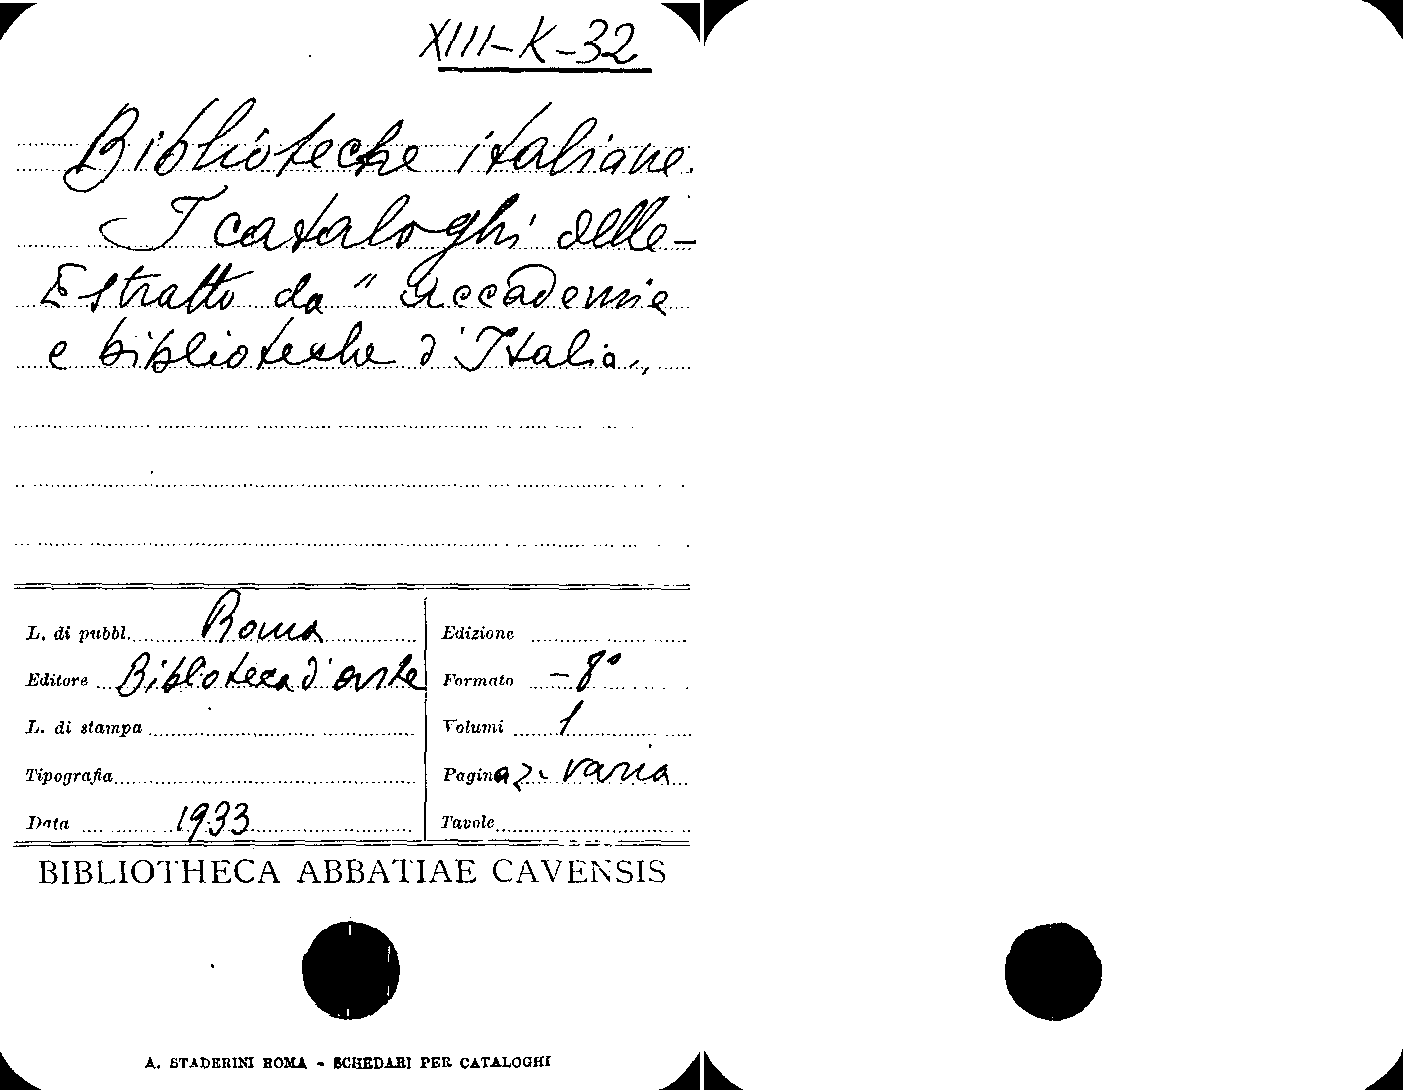 XIII-K-32
Biblioteche italiane.
I cataloghi delle-
Estratto da "Accademie
e biblioteche d'Italia„
L. di pubbl. Roma
Editore Biblioteca d'arte
L. di stampa
Tipografia
Data 1933
Edizione
Formato -8°
Volumi 1
Paginaz. varia
Tavole
BIBLIOTHECA ABBATIAE CAVENSIS
A. STADERINI ROMA - SCHEDARI PER CATALOGHI